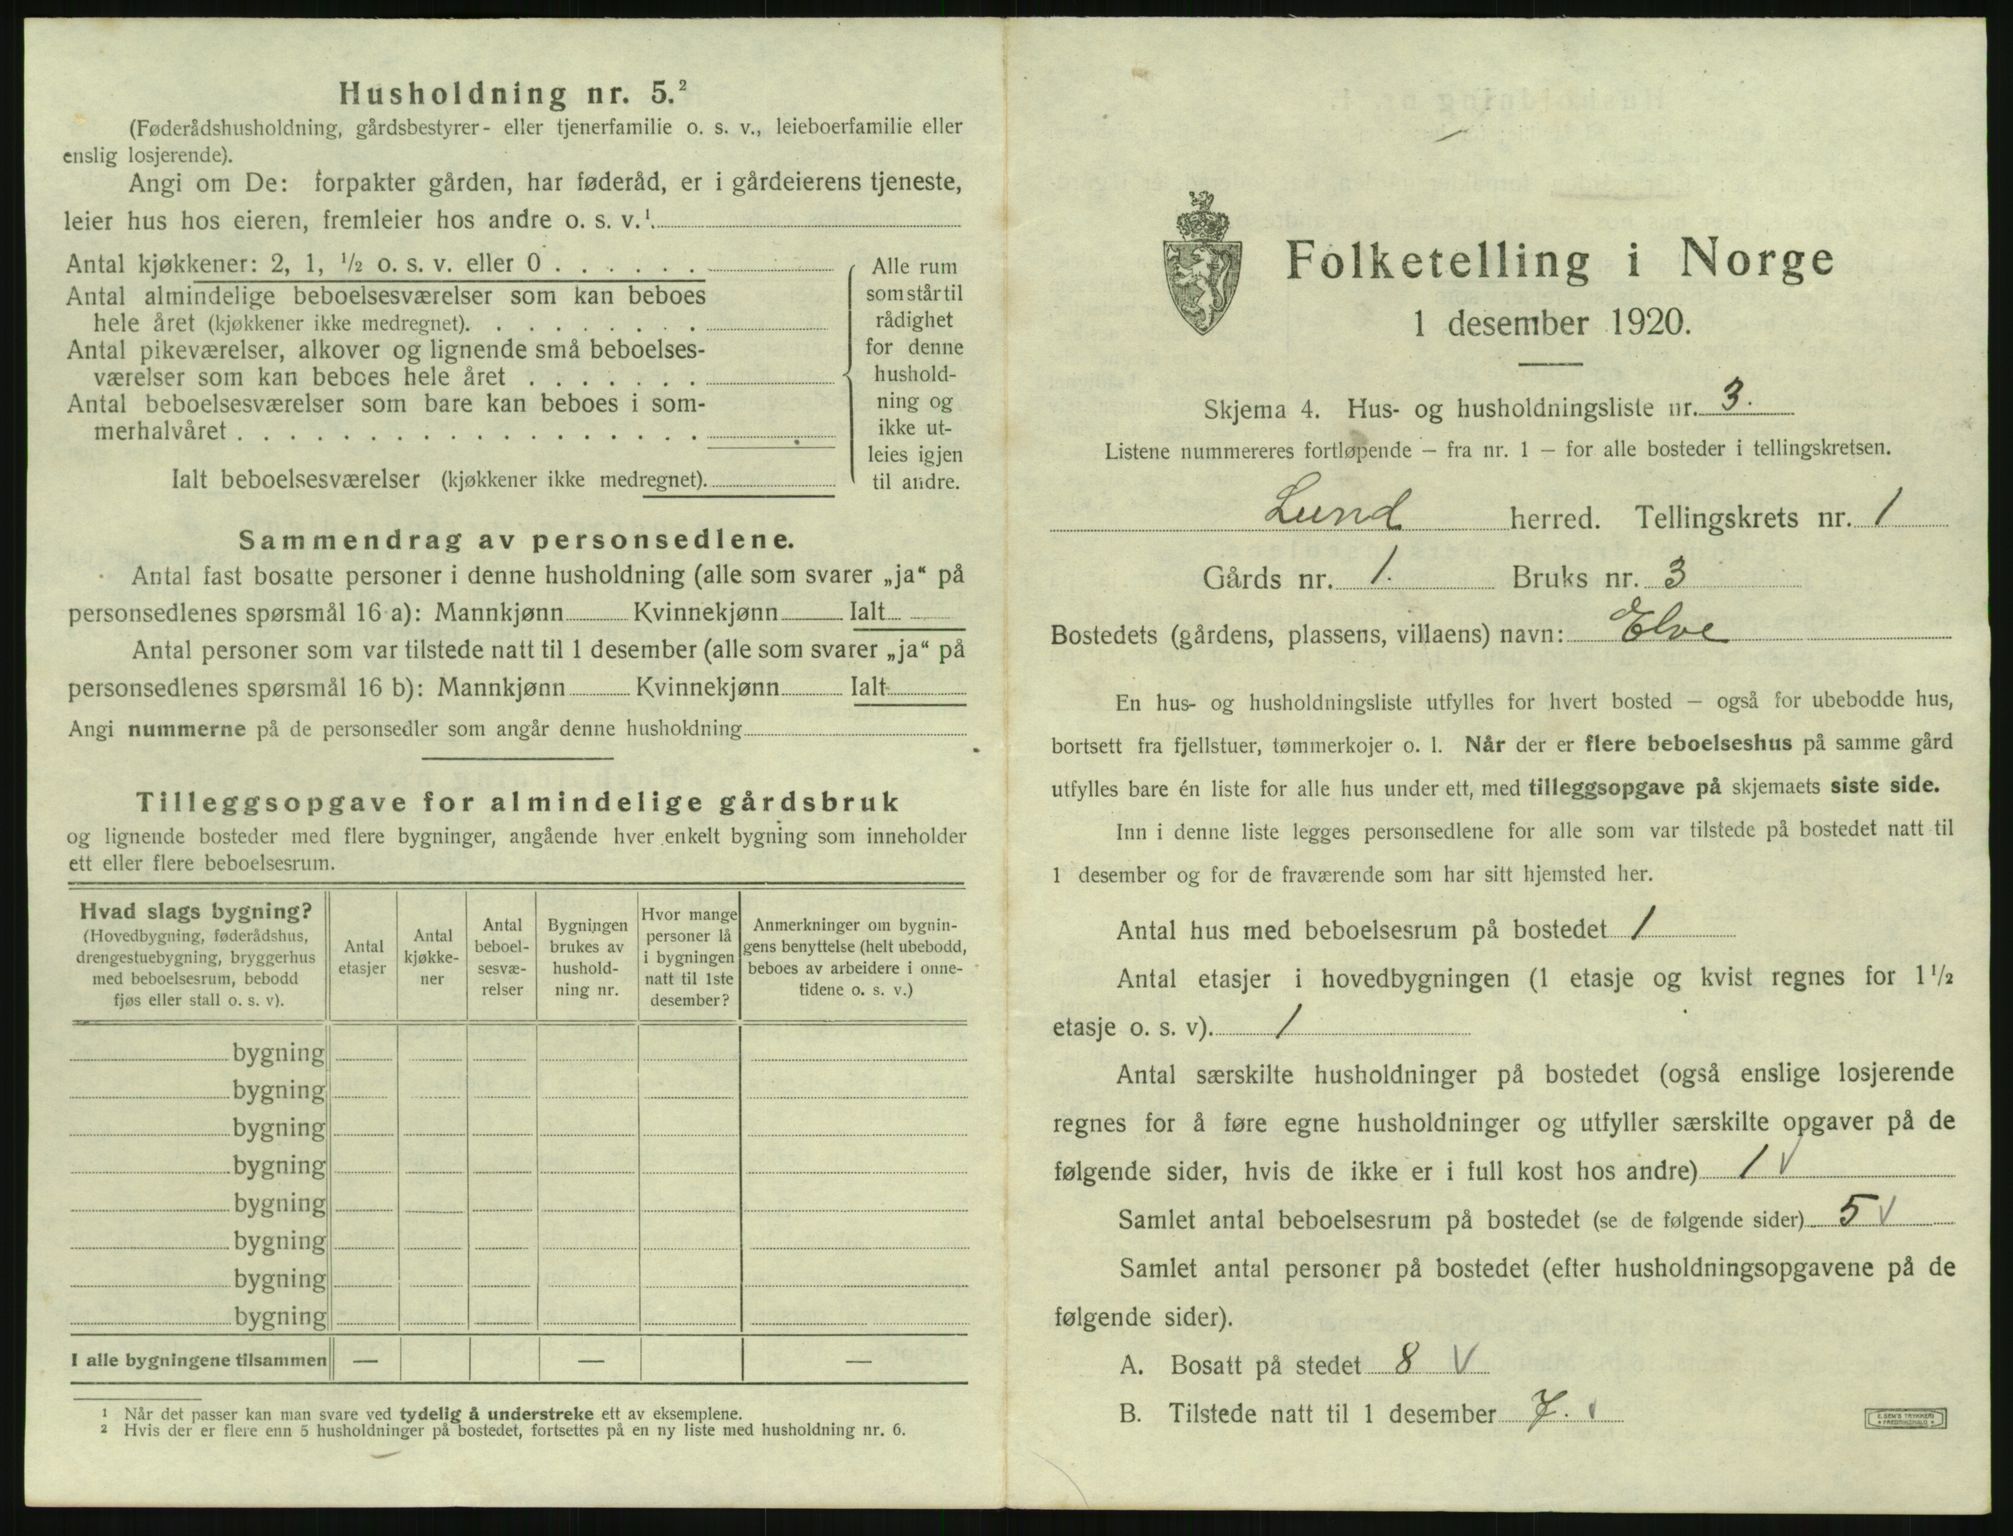 Husholdning nr. 5.²
(Føderådshusholdning, gårdsbestyrer- eller tjenerfamilie o. s. v., leieboerfamilie eller
enslig losjerende).
Angi om De: forpakter gården, har føderåd, er i gårdeierens tjeneste,
leier hus hos eieren, fremleier hos andre o. s. v.¹
Antal kjøkkener: 2, 1, ½ o. s. v. eller 0 . . . . . .
Antal almindelige beboelsesværelser som kan beboes
hele året (kjøkkener ikke medregnet). . . . . . . . .
Antal pikeværelser, alkover og lignende små beboelses-
værelser som kan beboes hele året . . . . . . .
Antal beboelsesværelser som bare kan beboes i som-
merhalvåret . . . . . . . . . . . . . . . . . .
Ialt beboelsesværelser (kjøkkener ikke medregnet).
Alle rum
som står til
rådighet
for denne
hushold-
ning og
ikke ut-
leies igjen
til andre.
Sammendrag av personsedlene.
Antal fast bosatte personer i denne husholdning (alle som svarer „ja“ på
personsedlenes spørsmål 16 a): Mannkjønn Kvinnekjønn Ialt
Antal personer som var tilstede natt til 1 desember (alle som svarer „ja“ på
personsedlenes spørsmål 16 b): Mannkjønn Kvinnekjønn Ialt
Angi nummerne på de personsedler som angår denne husholdning
Tilleggsopgave for almindelige gårdsbruk
og lignende bosteder med flere bygninger, angående hver enkelt bygning som inneholder
ett eller flere beboelsesrum.
Hvad slags bygning?
(Hovedbygning, føderådshus,
drengestuebygning, bryggerhus
med beboelsesrum, bebodd
fjøs eller stall o. s. v).
Antal
etasjer
Antal
kjøkke-
ner
Antal
beboel-
sesvæ-
relser
Bygningen
brukes av
hushold-
ning nr.
Hvor mange
personer lå
i bygningen
natt til 1ste
desember?
Anmerkninger om bygnin-
gens benyttelse (helt ubebodd,
beboes av arbeidere i onne-
tidene o. s. v.)
bygning
bygning
bygning
bygning
bygning
bygning
bygning
bygning
I alle bygningene tilsammen — — —
¹ Når det passer kan man svare ved tydelig å understreke ett av eksemplene.
² Hvis der er flere enn 5 husholdninger på bostedet, fortsettes på en ny liste med husholdning nr. 6.
Folketelling i Norge
1 desember 1920.
Skjema 4. Hus- og husholdningsliste nr. 3.
Listene nummereres fortløpende – fra nr. 1 – for alle bosteder i tellingskretsen.
Lund herred. Tellingskrets nr. 1
Gårds nr. 1. Bruks nr. 3
Bostedets (gårdens, plassens, villaens) navn: Elve
En hus- og husholdningsliste utfylles for hvert bosted – også for ubebodde hus,
bortsett fra fjellstuer, tømmerkojer o. l. Når der er flere beboelseshus på samme gård
utfylles bare én liste for alle hus under ett, med tilleggsopgave på skjemaets siste side.
Inn i denne liste legges personsedlene for alle som var tilstede på bostedet natt til
1 desember og for de fraværende som har sitt hjemsted her.
Antal hus med beboelsesrum på bostedet 1
Antal etasjer i hovedbygningen (1 etasje og kvist regnes for 1½
etasje o. s. v). 1
Antal særskilte husholdninger på bostedet (også enslige losjerende
regnes for å føre egne husholdninger og utfyller særskilte opgaver på de
følgende sider, hvis de ikke er i full kost hos andre) 1 V
Samlet antal beboelsesrum på bostedet (se de følgende sider) 5 V
Samlet antal personer på bostedet (efter husholdningsopgavene på de
følgende sider).
A. Bosatt på stedet 8 V
B. Tilstede natt til 1 desember 7. V
E. SEM'S TRYKKERI
FREDRIKSHALD